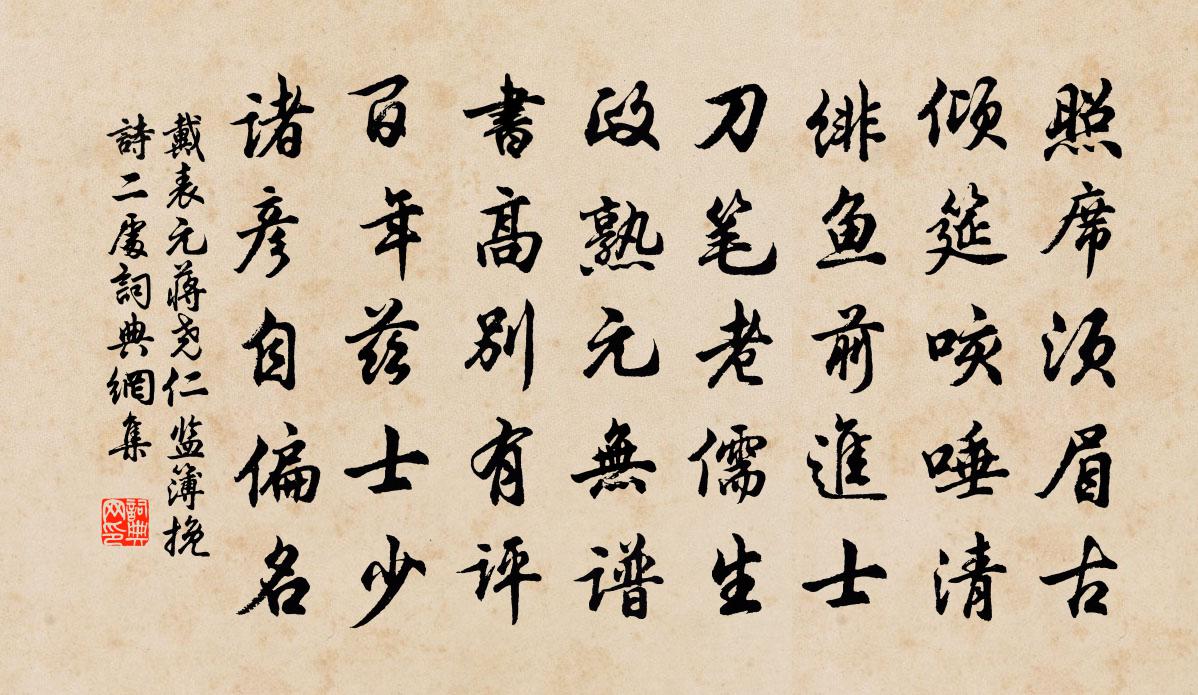 照席须眉古
倾筵咳唾清
绯鱼前進士
刀笔老儒生
政熟元無谱
書高别有评
百年兹士少
诸彦自偏名
戴表元蒋尧仁监簿挽
詩二處詞典網集
詞典网印